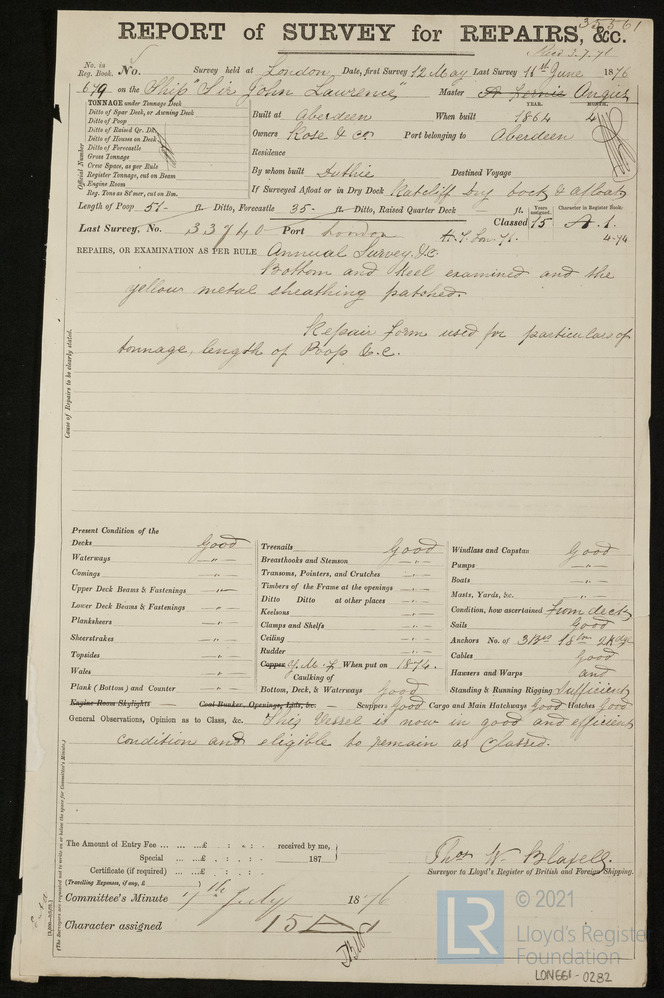 35561
REPORT of SURVEY for REPAIRS, &c.
No. in Reg. Book. No. Survey held at London, Date, first Survey 12 May Last Survey 11th June 1876
679 on the Ship "Sir John Lawrence" Master Angus
TONNAGE under Tonnage Deck
Ditto of Spar Deck, or Awning Deck
Ditto of Poop
Ditto of Raised Qr. Dk.
Ditto of Houses on Deck
Ditto of Forecastle
Gross Tonnage
Crew Space, as per Rule
Register Tonnage, cut on Beam
Engine Room
Reg. Tons as St'mer, cut on Bm.
Official Number
YEAR. MONTH.
Built at Aberdeen When built 1864 4
Owners Rose & Co Port belonging to Aberdeen
Residence
By whom built Duthie Destined Voyage
If Surveyed Afloat or in Dry Dock Ratcliff Dry Dock & afloat
Length of Poop 51 ft. Ditto, Forecastle 35 ft. Ditto, Raised Quarter Deck — ft. Classed Years assigned. 15 Character in Register Book: A. 1.
Last Survey, No. 33740 Port London 4-74
REPAIRS, OR EXAMINATION AS PER RULE Annual Survey &c.
Bottom and Keel examined and the
yellow metal sheathing patched.
Repair form used for particulars of
tonnage, length of Poop &c.
Cause of Repairs to be clearly stated.
Present Condition of the
Decks Good
Waterways — " —
Comings — " —
Upper Deck Beams & Fastenings — " —
Lower Deck Beams & Fastenings — " —
Planksheers — " —
Sheerstrakes — " —
Topsides — " —
Wales — " —
Plank (Bottom) and Counter — " —
Treenails Good
Breasthooks and Stemson — " —
Transoms, Pointers, and Crutches — " —
Timbers of the Frame at the openings — " —
Ditto Ditto at other places — " —
Keelsons — " —
Clamps and Shelfs — " —
Ceiling — " —
Rudder — " —
Copper Y.M. When put on 1874.
Caulking of
Bottom, Deck, & Waterways Good
Windlass and Capstan Good
Pumps — " —
Boats — " —
Masts, Yards, &c. — " —
Condition, how ascertained From deck
Sails Good
Anchors No. of 3 Brs 1 Strm 2 Kdge
Cables Good
Hawsers and Warps and
Standing & Running Rigging Sufficient
Engine Room Skylights — Coal Bunker, Openings, Lids, &c. — Scuppers Good Cargo and Main Hatchways Good Hatches Good
General Observations, Opinion as to Class, &c. This Vessel is now in good and efficient
condition and eligible to remain as Classed.
(The Surveyors are requested not to write on or below the space for Committee's Minute.)
The Amount of Entry Fee ... ... ...£ : : received by me,
Special ... ...£ : : 187
Certificate (if required) ... ...£ : :
(Travelling Expenses, if any, £ )
Thos W. Blaxell.
Surveyor to Lloyd's Register of British and Foreign Shipping.
Committee's Minute 7th July 1876
Character assigned 15 A 1
LR
© 2021
Lloyd's Register
Foundation
LON661-0282